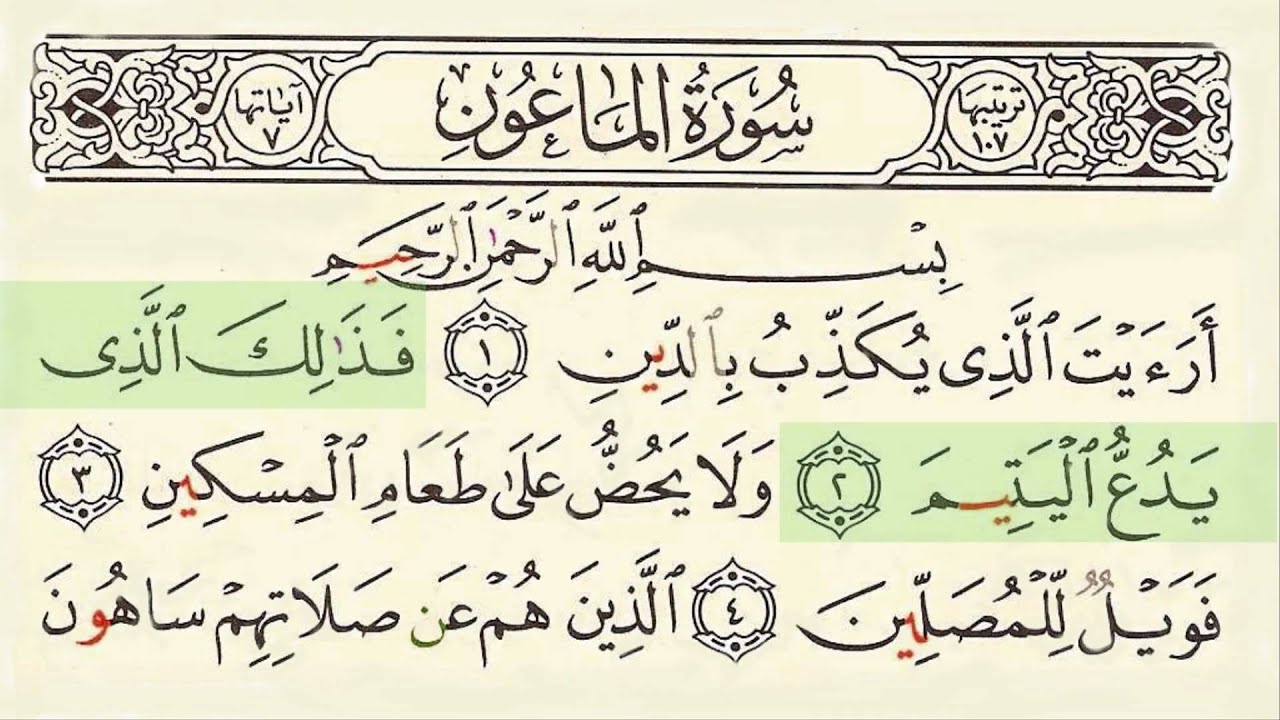 ترتيبها ١٠٧
سُورَةُ المَاعُونِ
آياتها ٧
بِسْمِ ٱللَّهِ ٱلرَّحْمَٰنِ ٱلرَّحِيمِ
أَرَءَيْتَ ٱلَّذِى يُكَذِّبُ بِٱلدِّينِ ١ فَذَٰلِكَ ٱلَّذِى
يَدُعُّ ٱلْيَتِيمَ ٢ وَلَا يَحُضُّ عَلَىٰ طَعَامِ ٱلْمِسْكِينِ ٣
فَوَيْلٌ لِّلْمُصَلِّينَ ٤ ٱلَّذِينَ هُمْ عَن صَلَاتِهِمْ سَاهُونَ